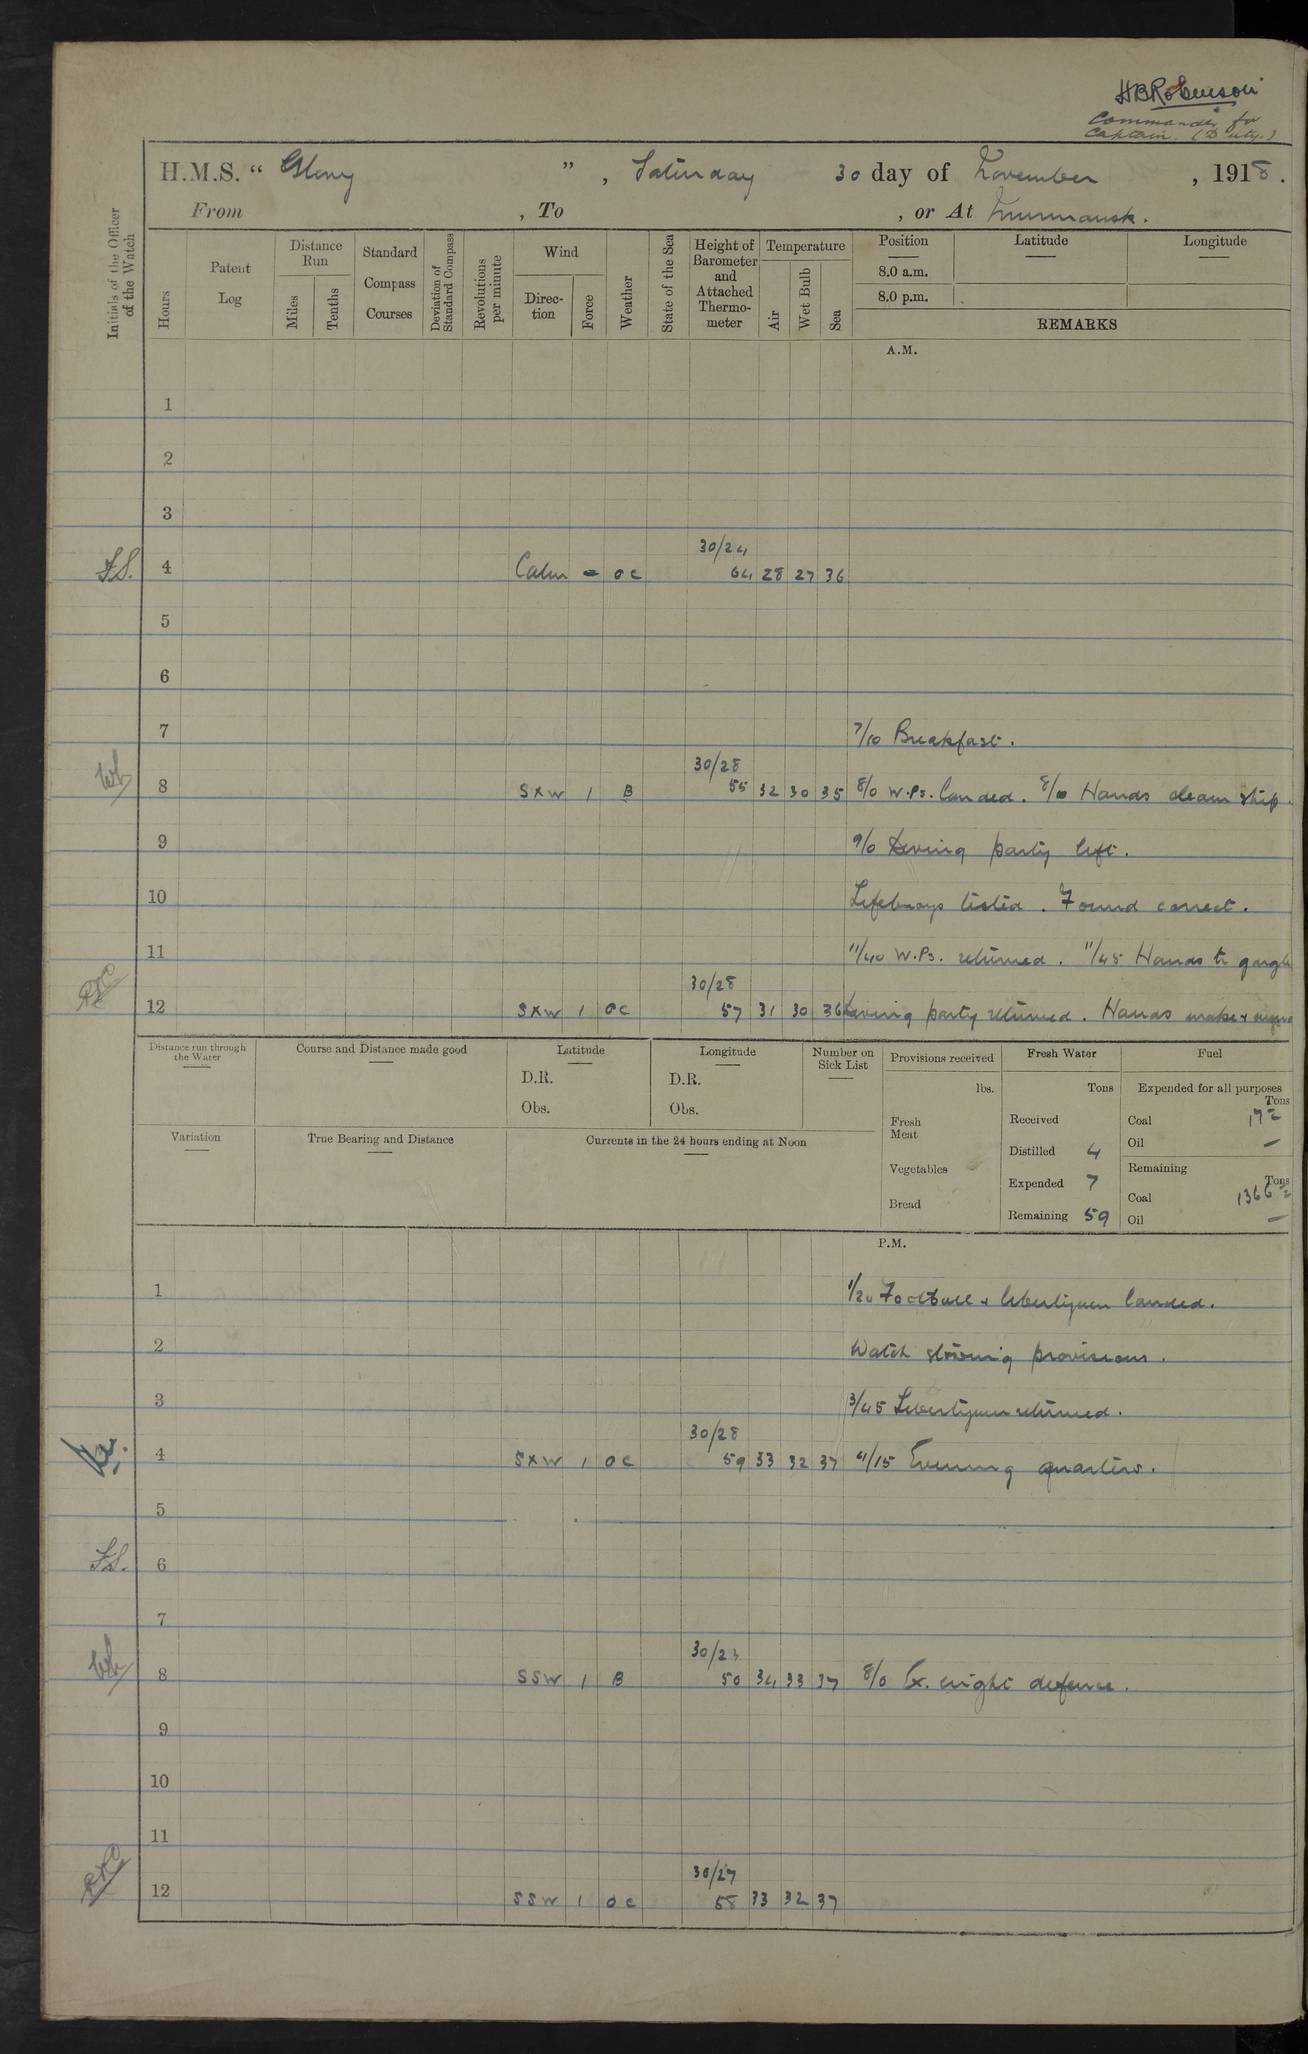 HBRobinson
Commander for
Captain. (Duty.)
H.M.S. “ Glory ” , Saturday 30 day of November , 1918.
From , To , or At Murmansk.
Initials of the Officer of the Watch
Hours
Patent Log
Distance Run
Miles
Tenths
Standard Compass Courses
Deviation of Standard Compass
Revolutions per minute
Wind
Direction
Force
Weather
State of the Sea
Height of Barometer and Attached Thermometer
Temperature
Air
Wet Bulb
Sea
Position Latitude Longitude
8.0 a.m.
8.0 p.m.
REMARKS
A.M.
1
2
3
30/24
F.S. 4 Calm = oc 64 28 27 36
5
6
7 7/10 Breakfast.
30/28
8 S x W 1 B 55 32 30 35 8/0 W.Ps. landed. 8/10 Hands clean ship.
9 9/0 party left.
10 Lifebuoys tested. Found correct.
11 11/40 W.Ps. returned. 11/45 Hands to gargle
30/28
12 S x W 1 oc 57 31 30 36 party returned. Hands make &
Distance run through the Water
Course and Distance made good
Latitude
D.R.
Obs.
Longitude
D.R.
Obs.
Number on Sick List
Provisions received
lbs.
Fresh Meat
Vegetables
Bread
Fresh Water
Tons
Received
Distilled 4
Expended 7
Remaining 59
Fuel
Expended for all purposes
Tons
Coal 17 =
Oil —
Remaining
Tons
Coal 1366 =
Oil —
Variation
True Bearing and Distance
Currents in the 24 hours ending at Noon
P.M.
1 1/20 Football & libertymen landed.
2 Watch storing provisions.
3 3/45 Libertymen returned.
30/28
4 S x W 1 oc 59 33 32 37 4/15 Evening quarters.
5
F.S. 6
7
30/23
8 SSW 1 B 50 34 33 37 8/0 Ex. night defence.
9
10
11
30/27
12 SSW 1 oc 58 33 32 37